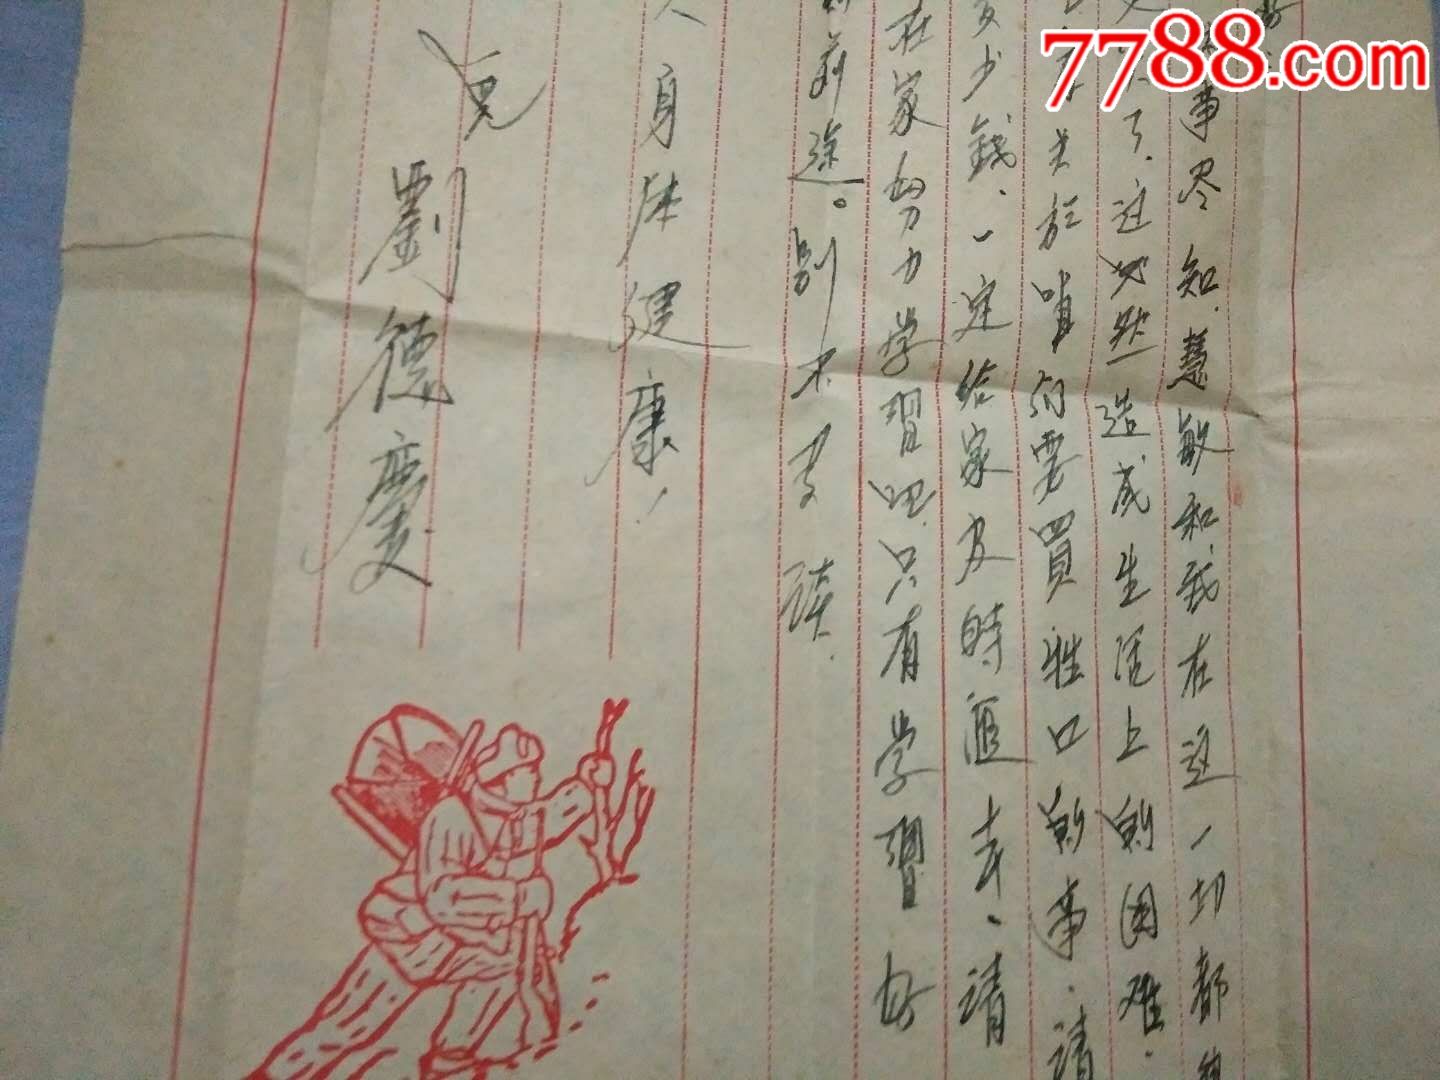 7788.com
事尽知.慧敏和我在这一切都
了.这必然造成生活上的困难.
关於咱们要買牲口的事.请
少錢.一定给家及時匯去.请
在家努力学習吧.只有学習好
前途。别不多谈.
身体健康!
兄
劉德慶